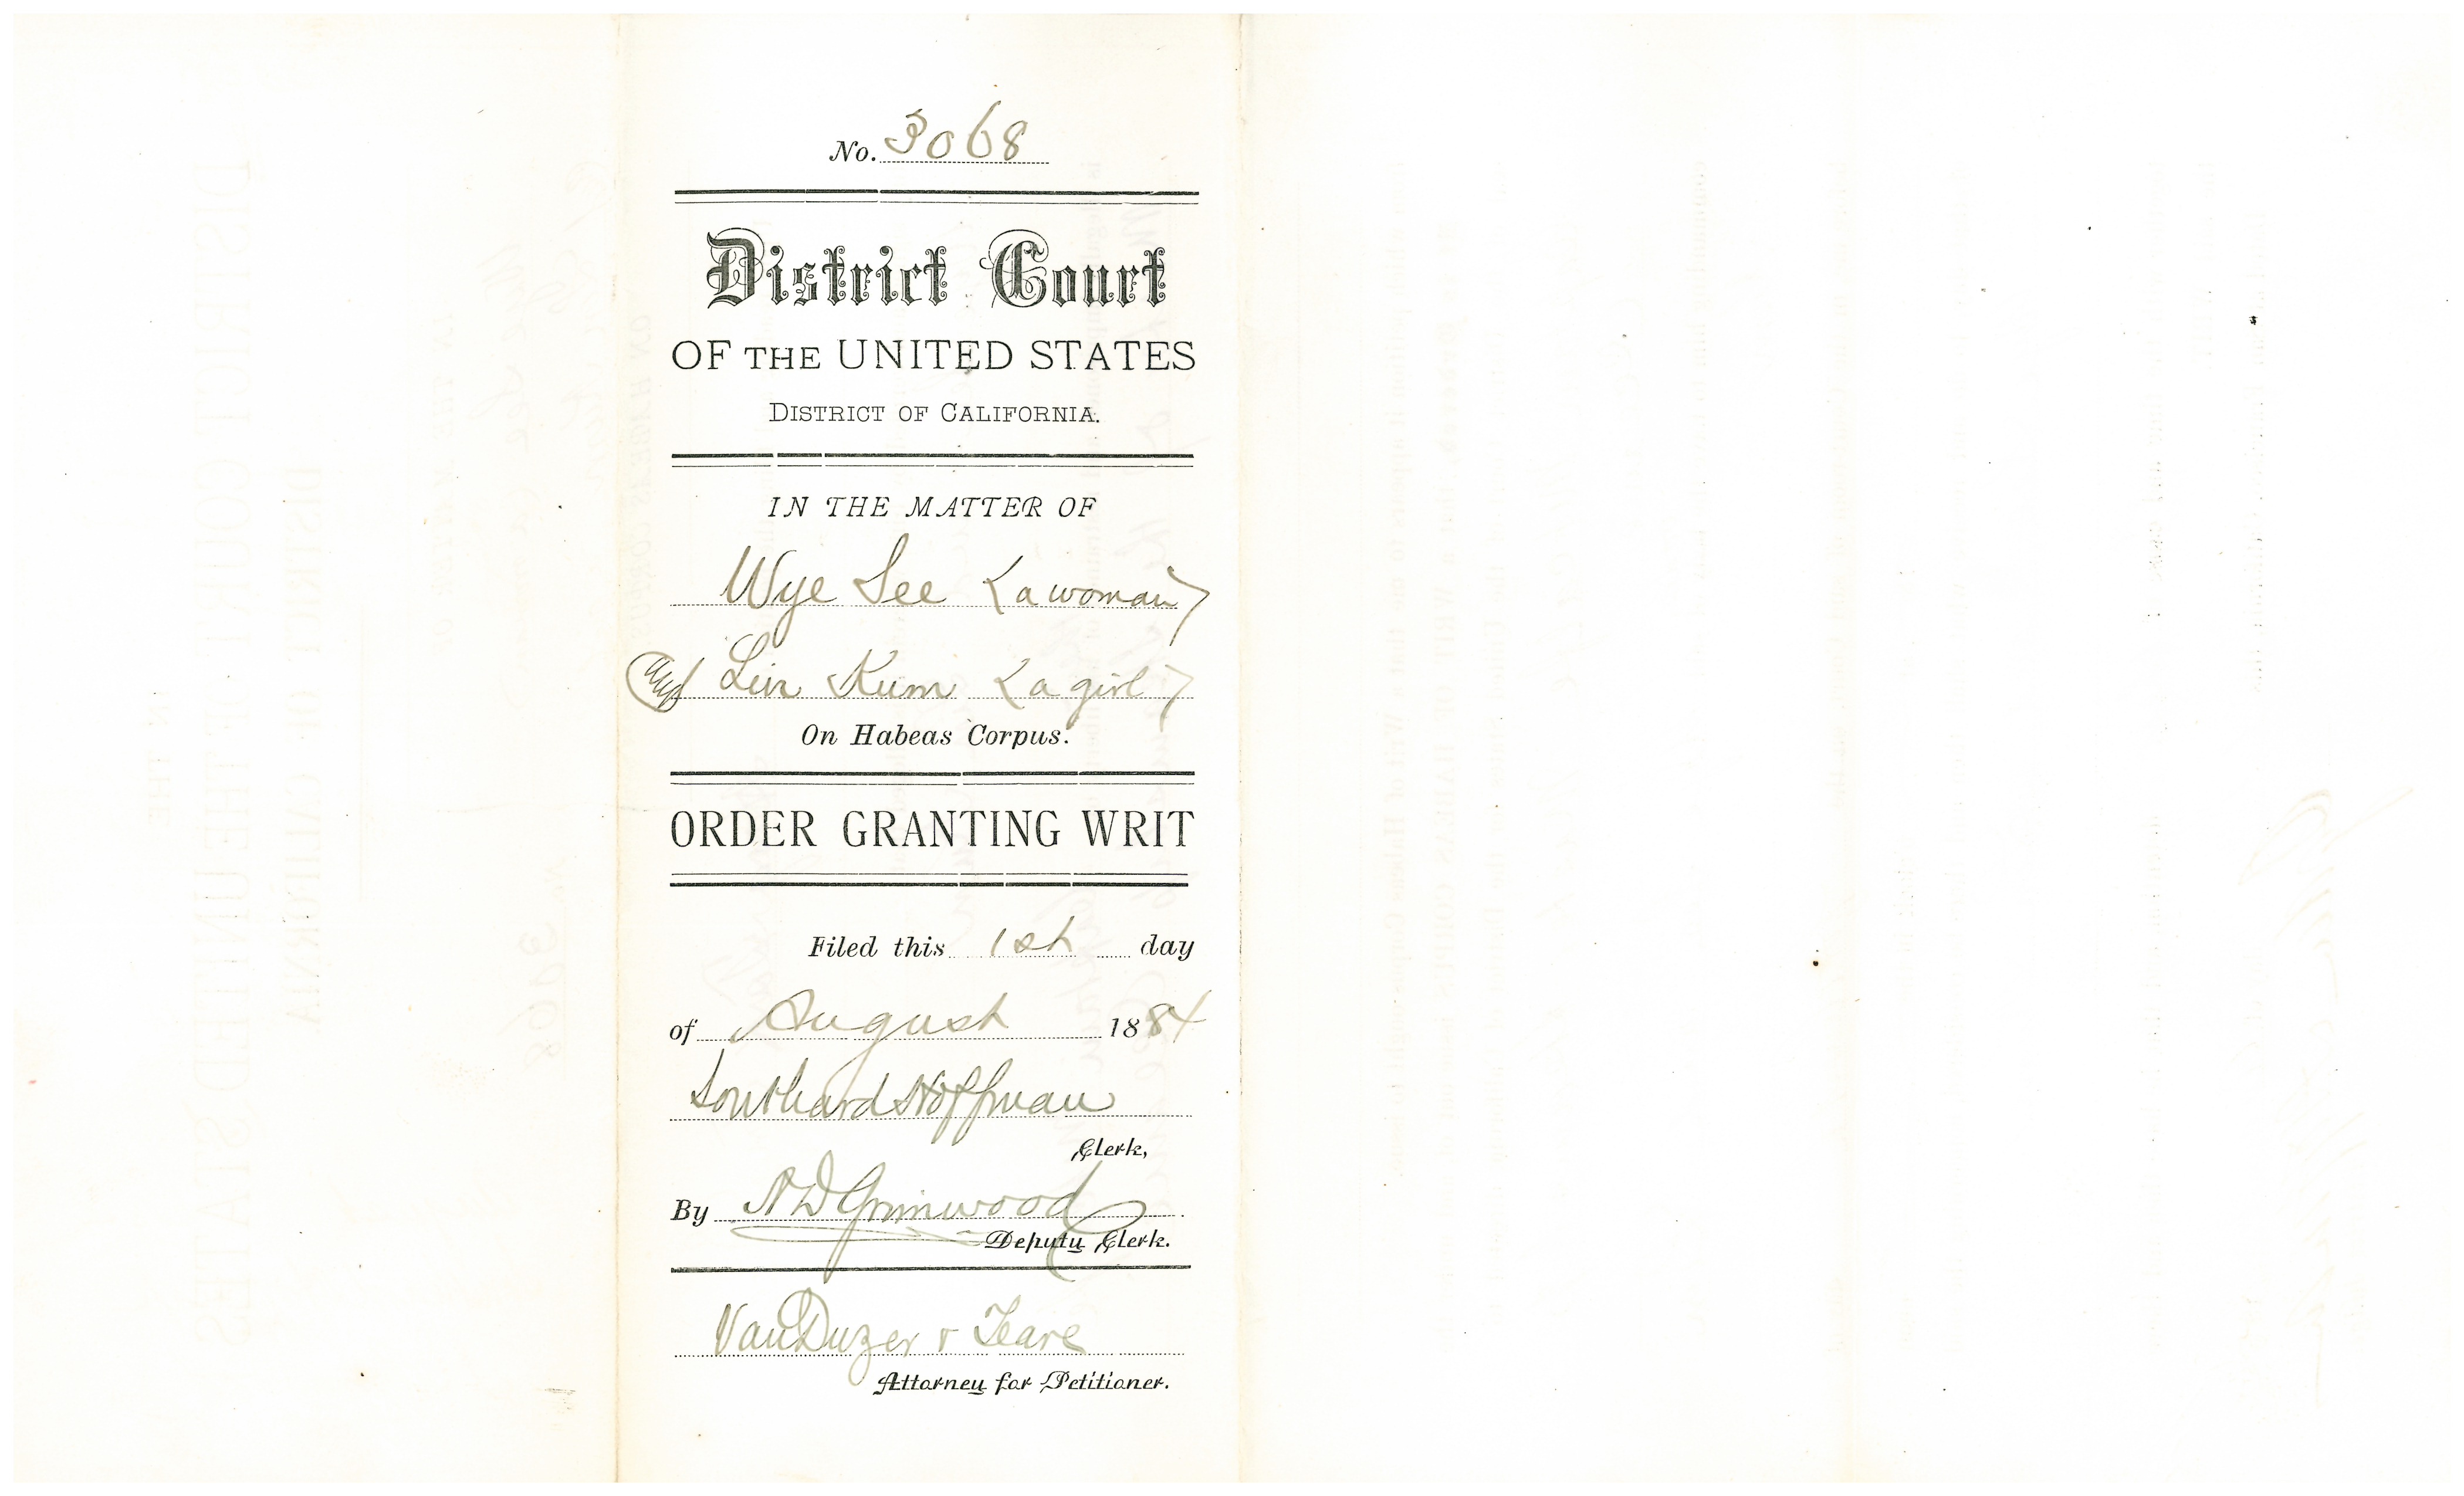 No. 3068
District Court
OF THE UNITED STATES
DISTRICT OF CALIFORNIA.
IN THE MATTER OF
Wye See (a woman)
(and) Lin Kum (a girl)
On Habeas Corpus.
ORDER GRANTING WRIT
Filed this 1st day
of August 1884
Southard Hoffman
Clerk,
By Grimwood
Deputy Clerk.
Van Duzer & Teare
Attorney for Petitioner.